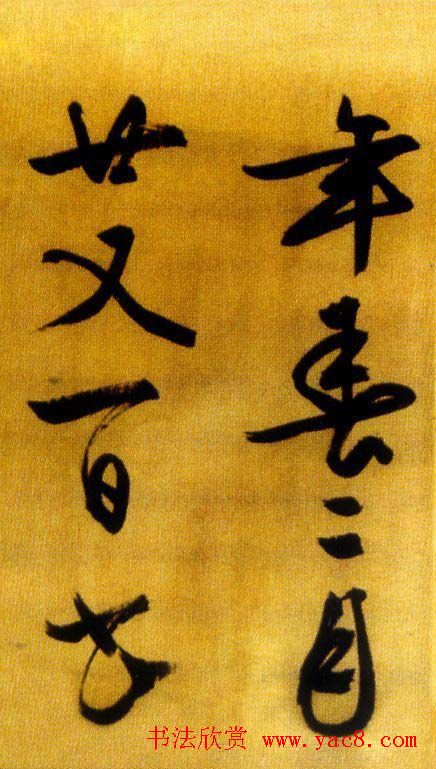 年春二月
廿又一日
书法欣赏 www.yac8.com